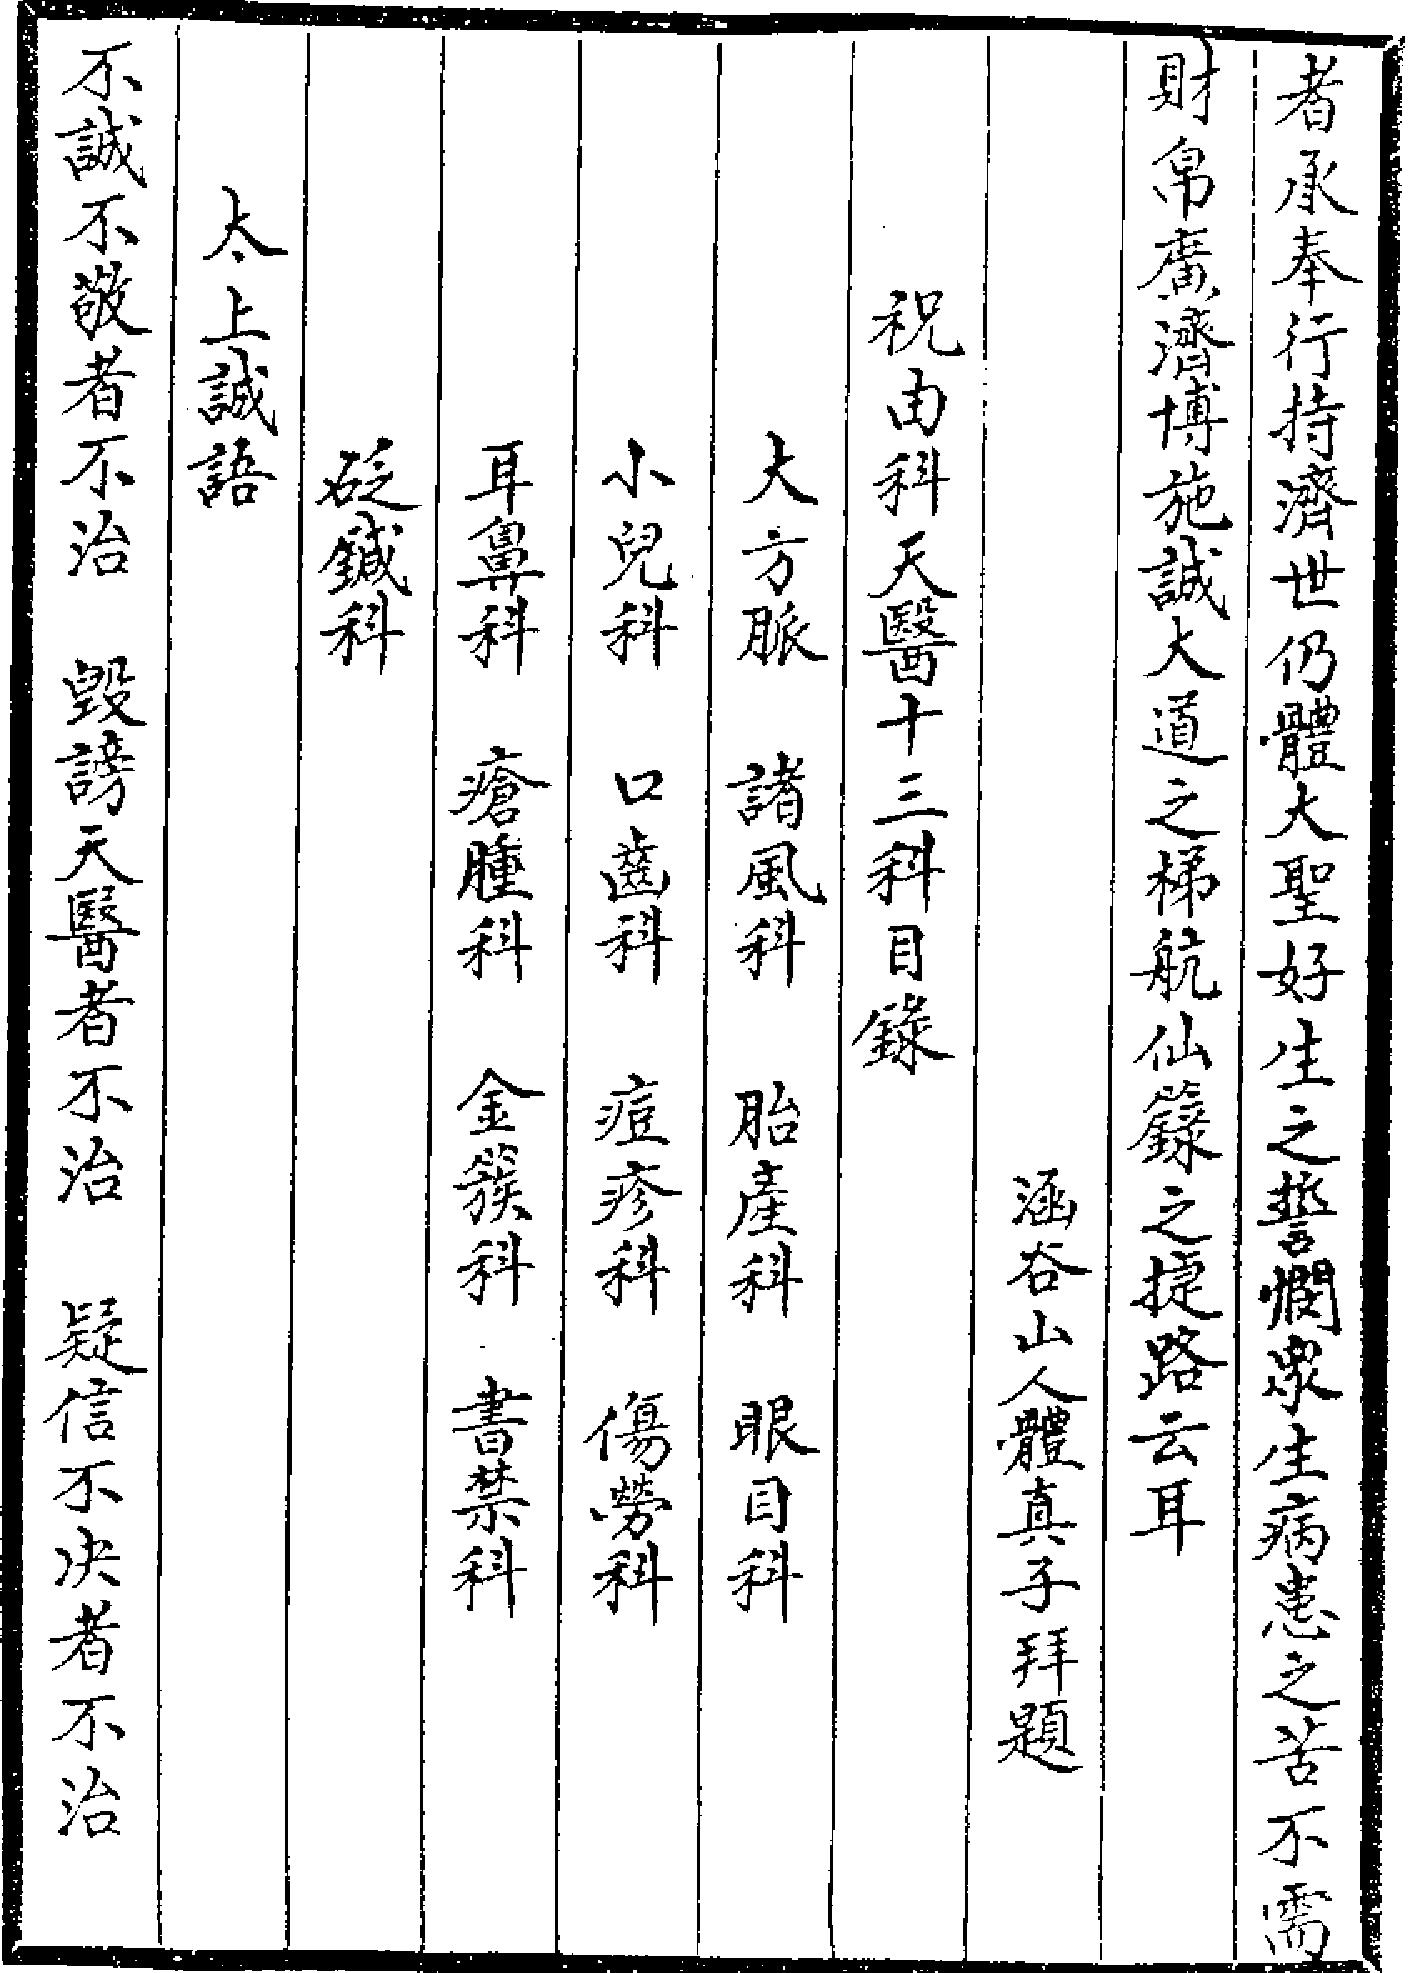 者承奉行持濟世仍體大聖好生之誓憫衆生病患之苦不需
財帛廣濟博施誠大道之梯航仙籙之捷路云耳
涵谷山人體真子拜題
祝由科天醫十三科目錄
大方脈　諸風科　胎產科　眼目科
小兒科　口齒科　痘疹科　傷勞科
耳鼻科　瘡腫科　金簇科　書禁科
砭鍼科
太上誠語
不誠不敬者不治　毀謗天醫者不治　疑信不决者不治